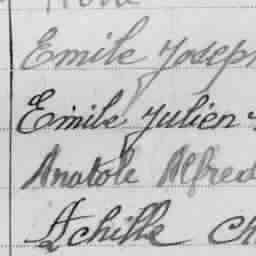 Emile Joseph
Emile Julien
Anatole Alfred
Achille